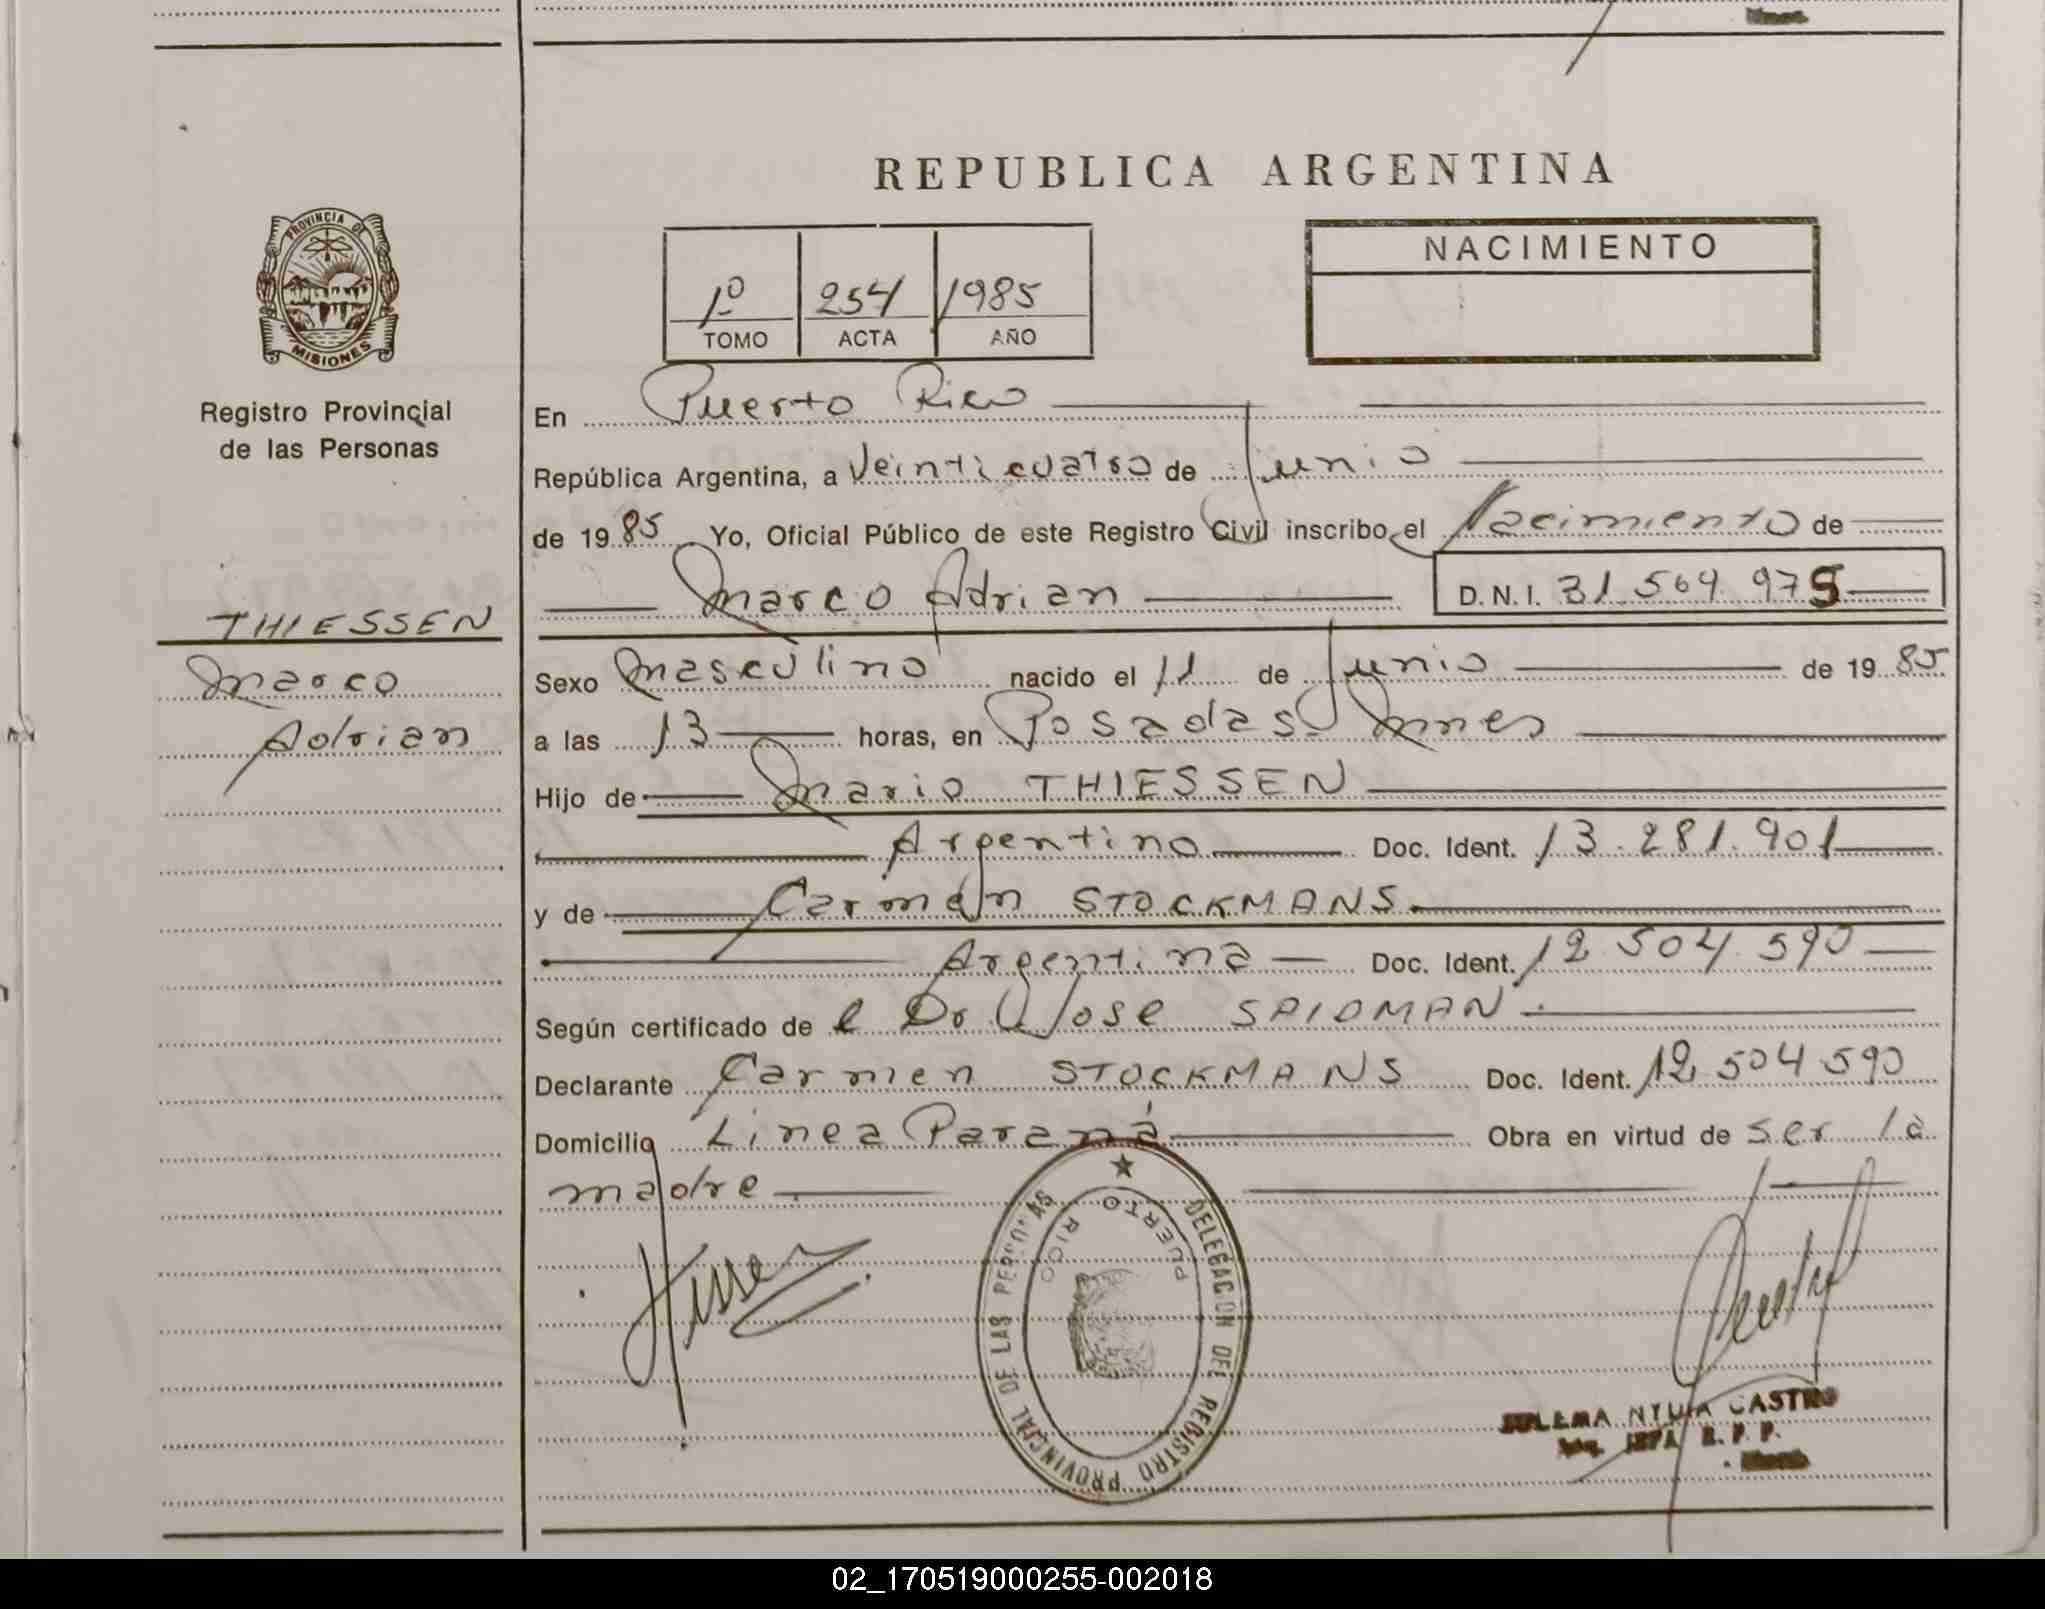 REPUBLICA ARGENTINA
PROVINCIA DE
MISIONES
Registro Provincial
de las Personas
1º 254 1985
TOMO ACTA AÑO
NACIMIENTO
En Puerto Rico
República Argentina, a Veinticuatro de Junio
de 1985 Yo, Oficial Público de este Registro Civil inscribo el Nacimiento de
Marco Adrian D.N.I. 31.564.975
THIESSEN
Marco
Adrian
Sexo Masculino nacido el 11 de Junio de 1985
a las 13 horas, en Posadas Mnes
Hijo de Mario THIESSEN
Argentino Doc. Ident. 13.281.901
y de Carmen STOCKMANS
Argentina Doc. Ident. 12.504.590
Según certificado de l Dr. Jose SAIDMAN
Declarante Carmen STOCKMANS Doc. Ident. 12.504.590
Domicilio Linea Paraná Obra en virtud de ser la
madre
DELEGACION DEL REGISTRO PROVINCIAL DE LAS PERSONAS
PUERTO RICO
CASTRO
R. P. P.
02_170519000255-002018